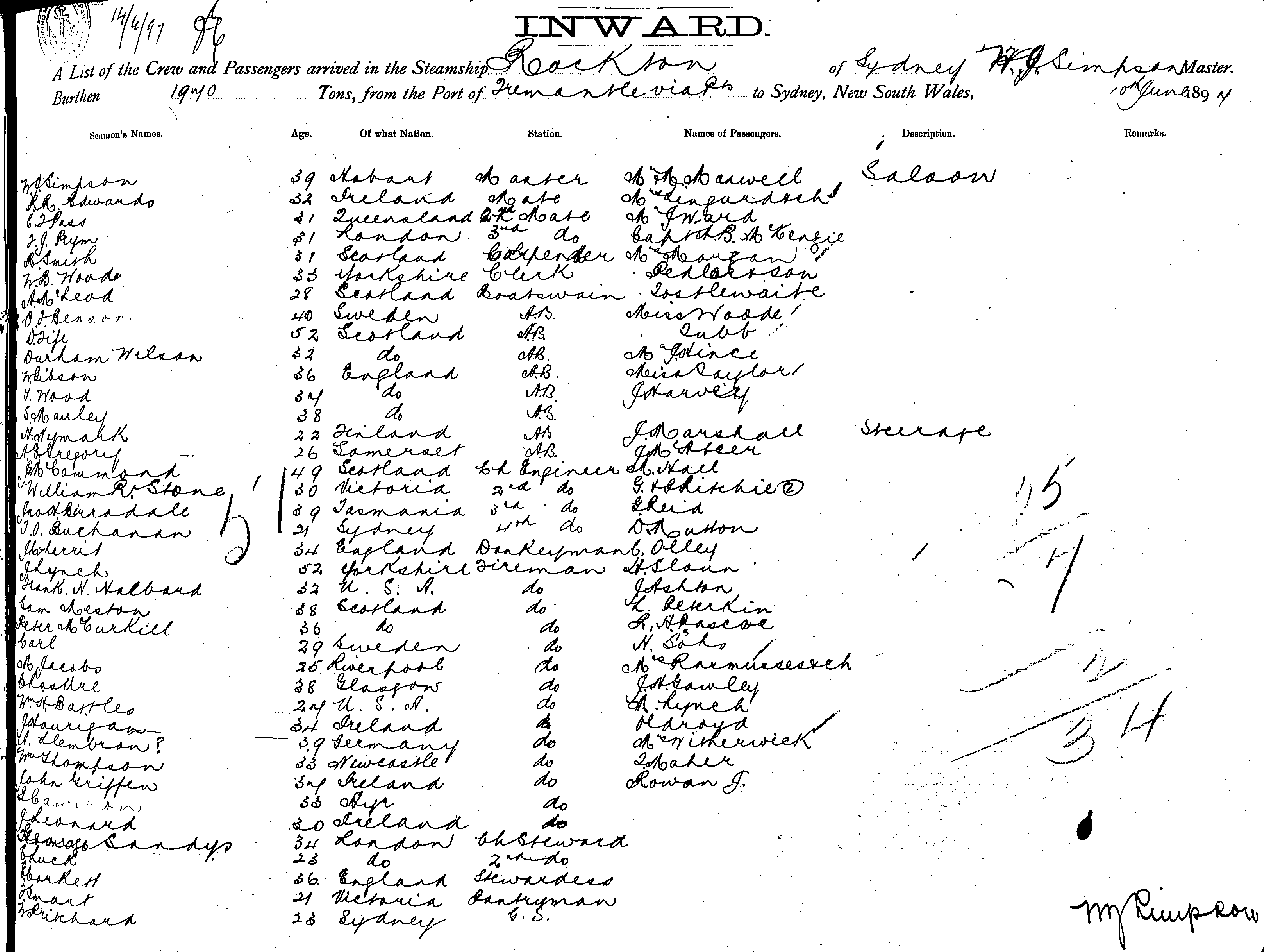 14/6/97
INWARD.
A List of the Crew and Passengers arrived in the Steamship Rockton of Sydney W.J. Simpson Master.
Burthen 1970 Tons, from the Port of Fremantle via Pts to Sydney, New South Wales, 10th June 1897
Seamen's Names. Age. Of what Nation. Station. Names of Passengers. Description. Remarks.
WJ Simpson 39 Hobart Master Mr Maxwell Saloon
Edwards 32 Ireland Mate
Pass 31 Queensland 2nd Mate Mr J Ward
F.J. Prym 31 London 3rd do Capt B. McKenzie
Smith 31 Scotland Carpenter Mr Morgan
W.B. Woods 33 Yorkshire Clerk
A McLeod 28 Scotland Boatswain Postlewaite
Benson 40 Sweden AB. Miss Woods
D Fife 52 Scotland AB. Tubb
Durham Wilson 32 do AB. Mr J Hince
W Gibson 36 England AB. Miss Taylor
T. Wood 37 do AB. J Harvey
S Manley 38 do AB.
A Nymark 22 Finland AB J Marshall Steerage
A Gregory 26 Somerset AB. J McAteer
McCammond 49 Scotland Ch Engineer Hall
William R. Stone 30 Victoria 2nd do G. Ritchie
39 Tasmania 3rd do Reid
Buchanan 21 Sydney 4th do D Mutton
34 England Donkeyman C. Olley
J Lynch 52 Yorkshire Fireman H Sloan
Frank. H. Halbard 32 U. S. A. do J Ashton
Sam Meston 38 Scotland do L. Peterkin
Peter McCurkill 36 do do R. A Pascoe
Carl 29 Sweden do N. Sohs
M Jacobs 25 Liverpool do Mr Rasmussesech
38 Glasgow do J H Gawley
Wm H Battles 27 U. S. A. do Lynch
J Hourigan 34 Ireland do Oldroyd
Hembron? 39 Germany do Mr Witherwick
Wm Thompson 33 Newcastle do T Maher
John Griffen 37 Ireland do Rowan J.
33 Ayr do
J Leonard 30 Ireland do
Sandys 34 London Ch Steward
Chuck 23 do 2nd do
Corkett 36 England Stewardess
Smart 21 Victoria Pantryman
W Prichard 23 Sydney G. S.
5
15
7
12
34
WJ Simpson